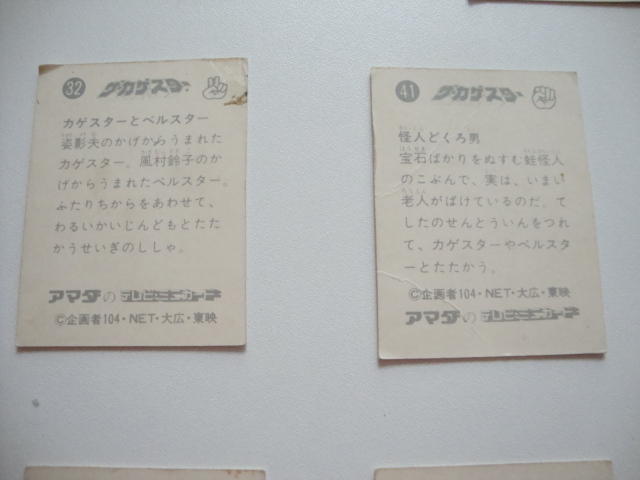 32 ザ・カゲスター
カゲスターとベルスター
姿影夫のかげからうまれた
カゲスター。風村鈴子のか
げからうまれたベルスター。
ふたりちからをあわせて、
わるいかいじんどもとたた
かうせいぎのししゃ。
アマダのテレビ・ミニカード
©企画者104・NET・大広・東映
41 ザ・カゲスター
怪人どくろ男
宝石ばかりをぬすむ蛙怪人
のこぶんで、実は、いまい
老人がばけているのだ。て
したのせんとういんをつれ
て、カゲスターやベルスタ
ーとたたかう。
©企画者104・NET・大広・東映
アマダのテレビ・ミニカード